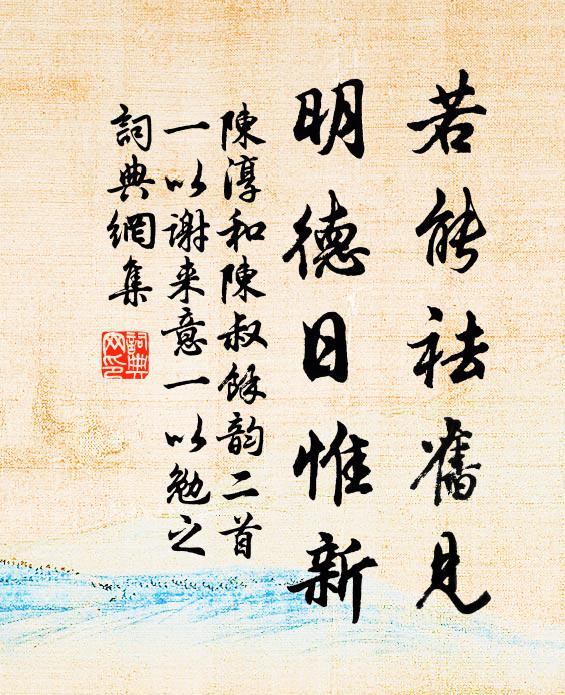 若能祛舊見
明德日惟新
陳淳和陳叔餘韵二首
一以謝来意一以勉之
詞典網集
詞典網印